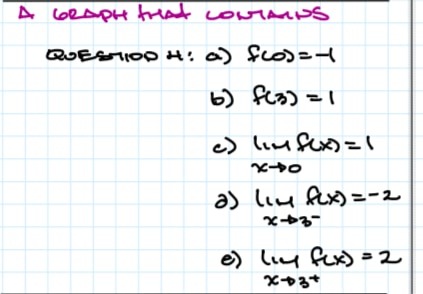 A GRAPH THAT CONTAINS
QUESTION 4: a) f(0)=-1
b) f(3) = 1
c) lim f(x) = 1
x→0
d) lim f(x) = -2
x→3⁻
e) lim f(x) = 2
x→3⁺